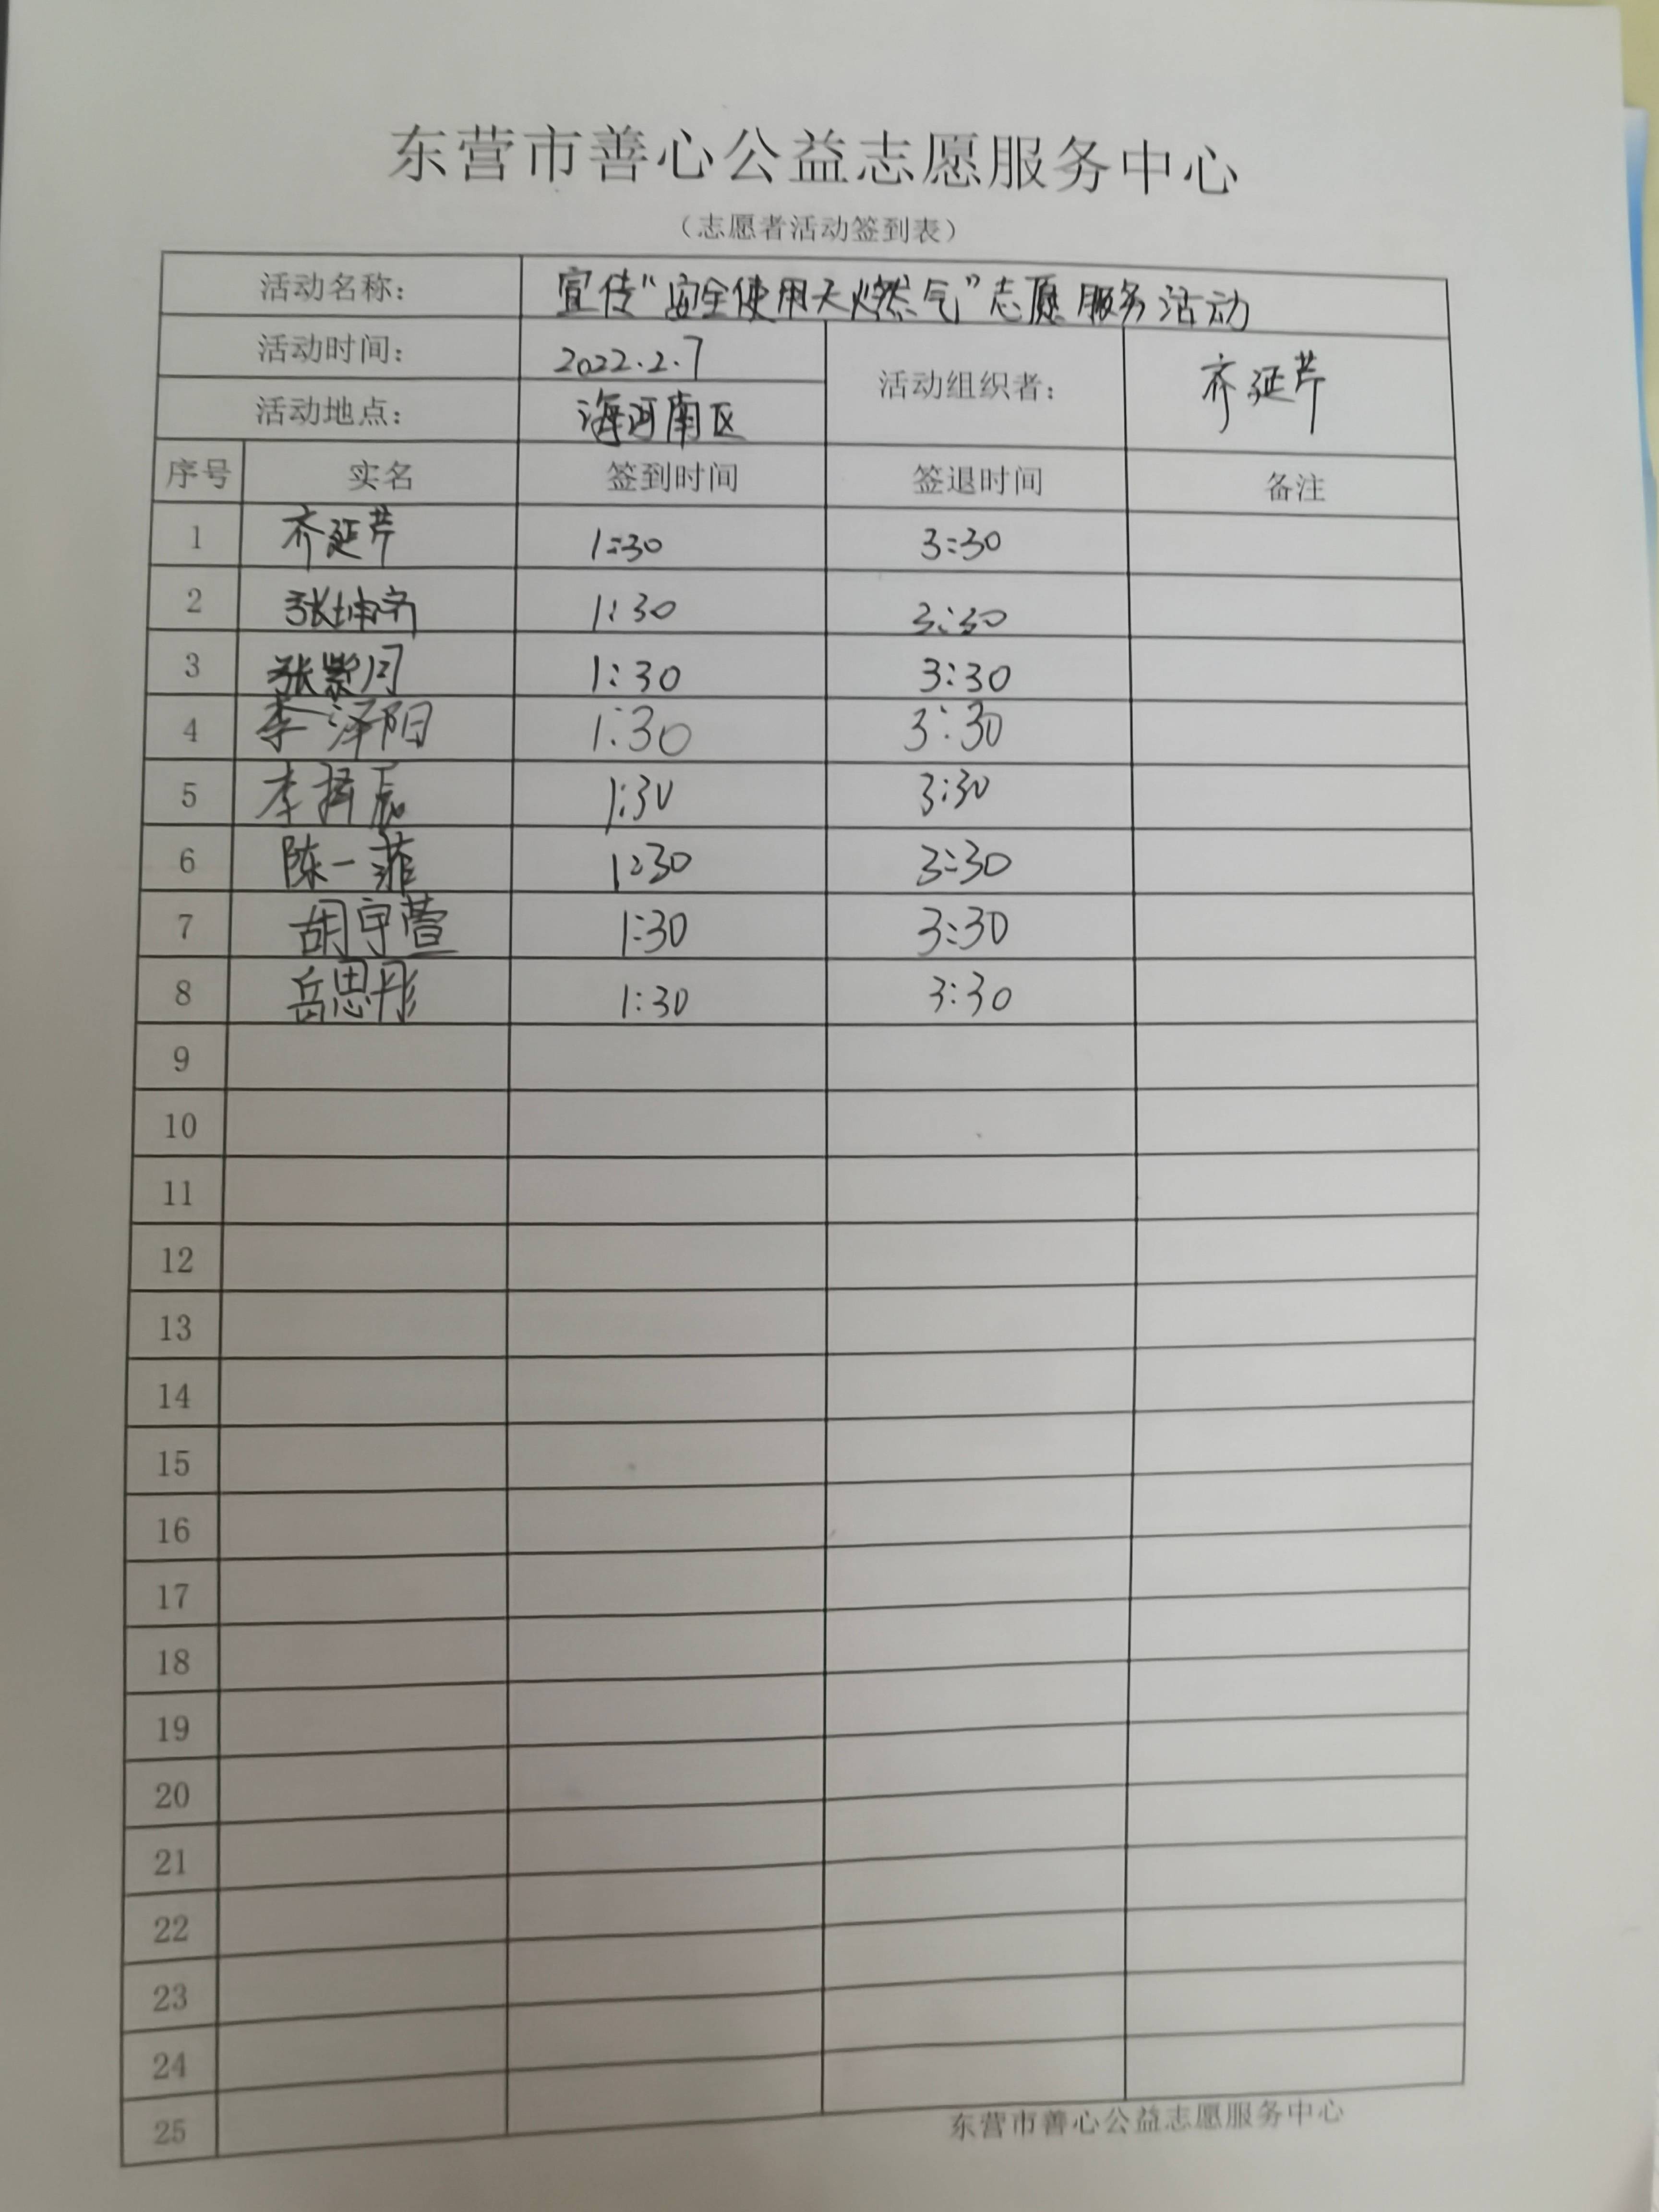 东营市善心公益志愿服务中心
（志愿者活动签到表）
活动名称： 宣传“安全使用天燃气”志愿服务活动
活动时间： 2022.2.7 活动组织者： 齐延芹
活动地点： 海河南区
序号 实名 签到时间 签退时间 备注
1 齐延芹 1:30 3:30
2 1:30 3:30
3 张紫月 1:30 3:30
4 李泽阳 1:30 3:30
5 李择辰 1:30 3:30
6 陈一菲 1:30 3:30
7 胡宇萱 1:30 3:30
8 岳思彤 1:30 3:30
9
10
11
12
13
14
15
16
17
18
19
20
21
22
23
24
25
东营市善心公益志愿服务中心